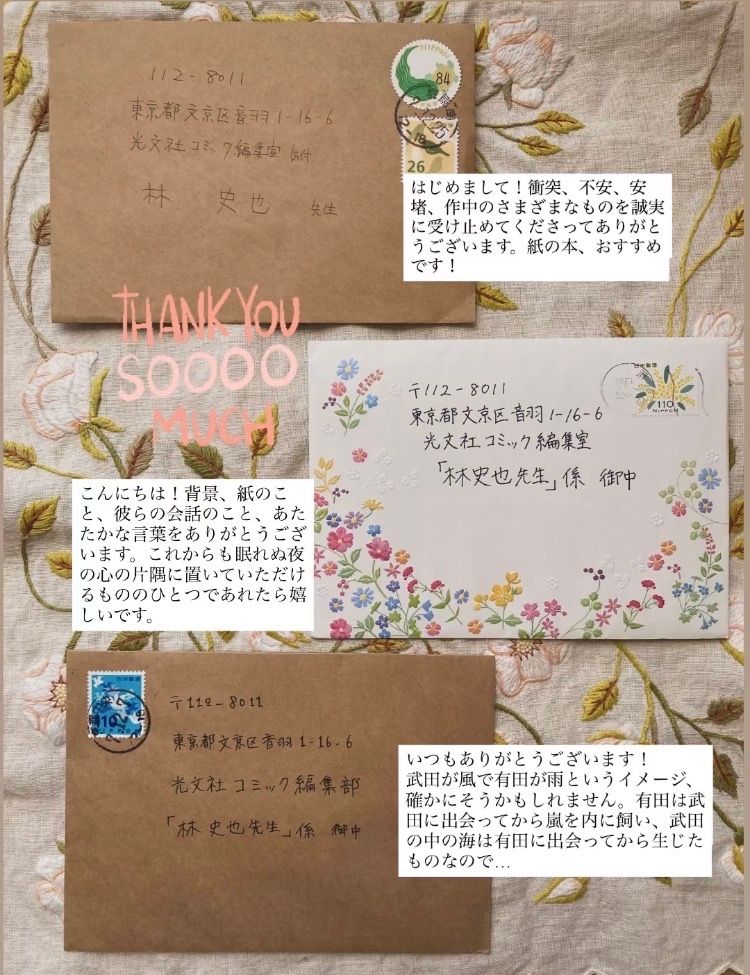 112-8011
東京都文京区音羽1-16-6
光文社コミック編集室 気付
林 史也 先生
NIPPON
84
26
はじめまして!衝突、不安、安
堵、作中のさまざまなものを誠実
に受け止めてくださってありがと
うございます。紙の本、おすすめ
です!
THANK YOU
SOOOO
MUCH
〒112-8011
東京都文京区音羽1-16-6
光文社コミック編集室
「林史也先生」係 御中
日本郵便
110
NIPPON
こんにちは!背景、紙のこ
と、彼らの会話のこと、あた
たかな言葉をありがとうござ
います。これからも眠れぬ夜
の心の片隅に置いていただけ
るもののひとつであれたら嬉
しいです。
日本郵便
110
NIPPON
〒112-8011
東京都文京区音羽1-16-6
光文社コミック編集部
「林 史也先生」係 御中
いつもありがとうございます!
武田が風で有田が雨というイメージ、
確かにそうかもしれません。有田は武
田に出会ってから嵐を内に飼い、武田
の中の海は有田に出会ってから生じた
ものなので…